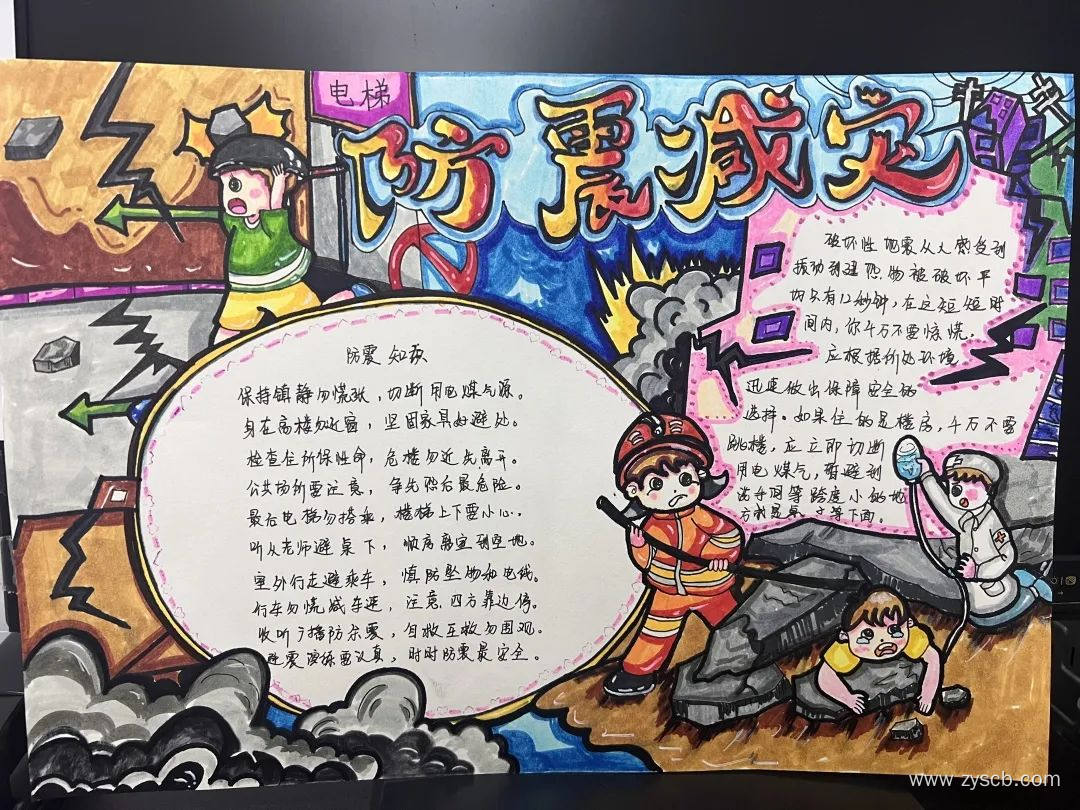 电梯
防震减灾
防震知识
保持镇静勿慌张，切断用电煤气源。
身在高楼勿近窗，坚固家具好避处。
检查住所保性命，危楼勿近出离开。
公共场所要注意，争先恐后最危险。
最后电梯勿搭乘，楼梯上下要小心。
听从老师避桌下，顺序离室到空地。
室外行走避乘车，慎防坠物和电线。
行车勿慌减车速，注意四方靠边停。
收听广播防余震，自救互救勿围观。
避震演练要认真，时时防震最安全。
破坏性地震从人感觉到
振动到建筑物被破坏平
均只有12秒钟，在这短短时
间内，你千万不要惊慌。
应根据所处环境
迅速做出保障安全的
选择。如果住的是楼房，千万不要
跳楼，应立即切断
用电煤气，暂避到
洗手间等跨度小的地
方或是桌子等下面。
www.zyscb.com